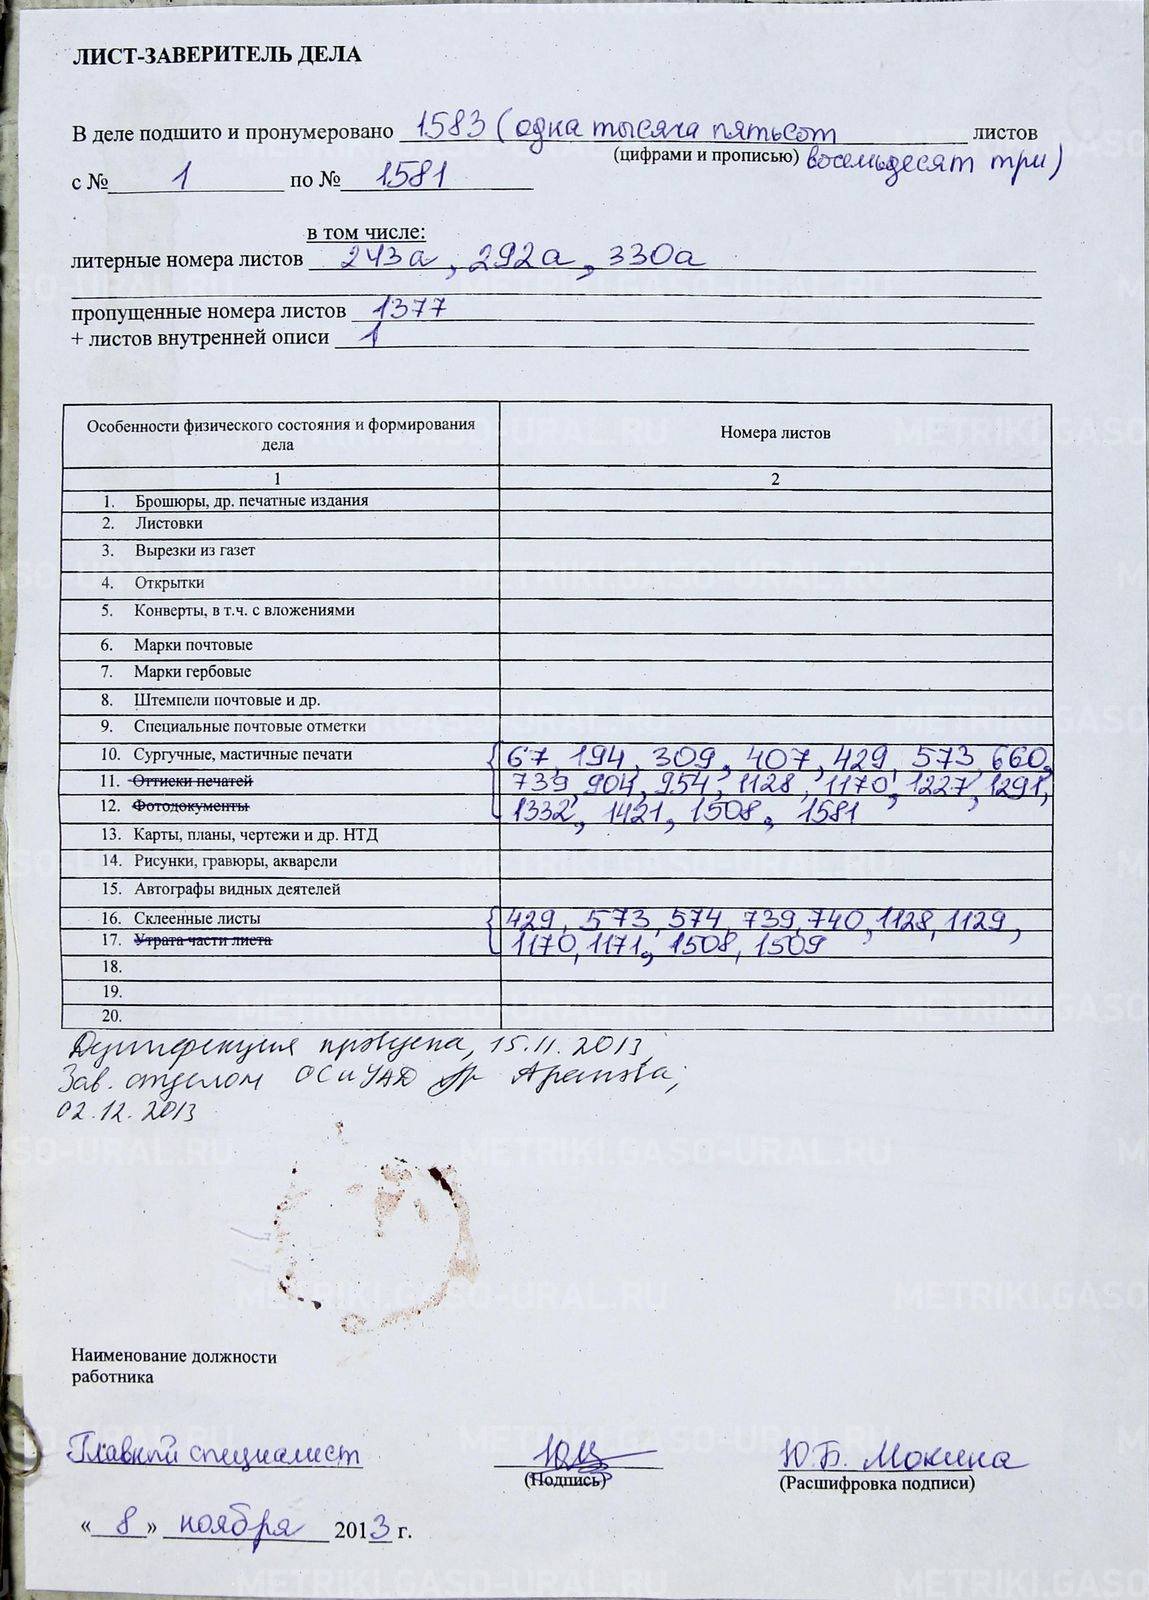 ЛИСТ-ЗАВЕРИТЕЛЬ ДЕЛА
В деле подшито и пронумеровано 1583 (одна тысяча пятьсот листов
(цифрами и прописью) восемьдесят три)
с № 1 по № 1581
в том числе:
литерные номера листов 243а, 292а, 330а
пропущенные номера листов 1377
+ листов внутренней описи 1
Особенности физического состояния и формирования дела Номера листов
1 2
1. Брошюры, др. печатные издания
2. Листовки
3. Вырезки из газет
4. Открытки
5. Конверты, в т.ч. с вложениями
6. Марки почтовые
7. Марки гербовые
8. Штемпели почтовые и др.
9. Специальные почтовые отметки
10. Сургучные, мастичные печати 67, 194, 309, 407, 429, 573, 660,
11. Оттиски печатей 739, 904, 954, 1128, 1170, 1227, 1291,
12. Фотодокументы 1332, 1421, 1508, 1581
13. Карты, планы, чертежи и др. НТД
14. Рисунки, гравюры, акварели
15. Автографы видных деятелей
16. Склеенные листы 429, 573, 574, 739, 740, 1128, 1129,
17. Утрата части листа 1170, 1171, 1508, 1509
18.
19.
20.
Дезинфекция проведена, 15.11.2013
Зав. отделом ОСиУАД Арапова;
02.12.2013
Наименование должности
работника
Главный специалист Ю.Б. Мокина
(Подпись) (Расшифровка подписи)
« 8 » ноября 2013 г.
METRIKI.GASO-URAL.RU